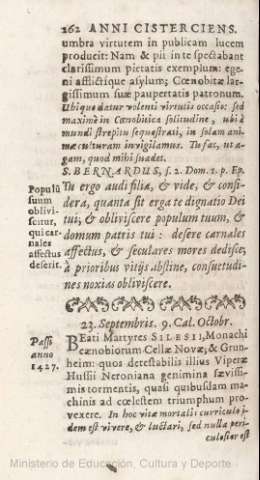 262 ANNI CISTERCIENS.
umbra virtutem in publicam lucem
producit: Nam & pii inte spectabant
clarissimum pietatis exemplum: ege-
ni afflictique asylum; Cœnobitæ lar-
gissimum suæ paupertatis patronum.
Ubique datur volenti virtutis occasio: sed
maximè in Cœnobitica solitudine, ubi à
mundi strepitu sequestrati, in solam ani-
mæ culturam invigilamus. Tu fac, ut a-
gam, quod mihi suadet.
S. BERNARDUS, s. 2. Dom. 1. p. Ep.
Populū
suum
oblivi-
scitur,
qui car-
nales
affectus
deserit.
Tu ergo audi filia, & vide, & consi-
dera, quanta sit erga te dignatio Dei
tui, & obliviscere populum tuum, &
domum patris tui: desere carnales
affectus, & seculares mores dedisce,
à prioribus vitiis abstine, consuetudi-
nes noxias obliviscere.
23. Septembris. 9. Cal. Octobr.
Passi
anno
1427.
BEati Martyres SILESII, Monachi
cænobiorum Cellæ Novæ, & Grun-
heim: quos detestabilis illius Viperæ
Hussii Neroniana genimina sævissi-
mis tormentis, quasi quibusdam ma-
chinis ad cœlestem triumphum pro-
vexere. In hoc vitæ mortalis curriculo i-
dem est vivere, & luctari, sed nulla peri-
culosior est
Ministerio de Educación, Cultura y Deporte